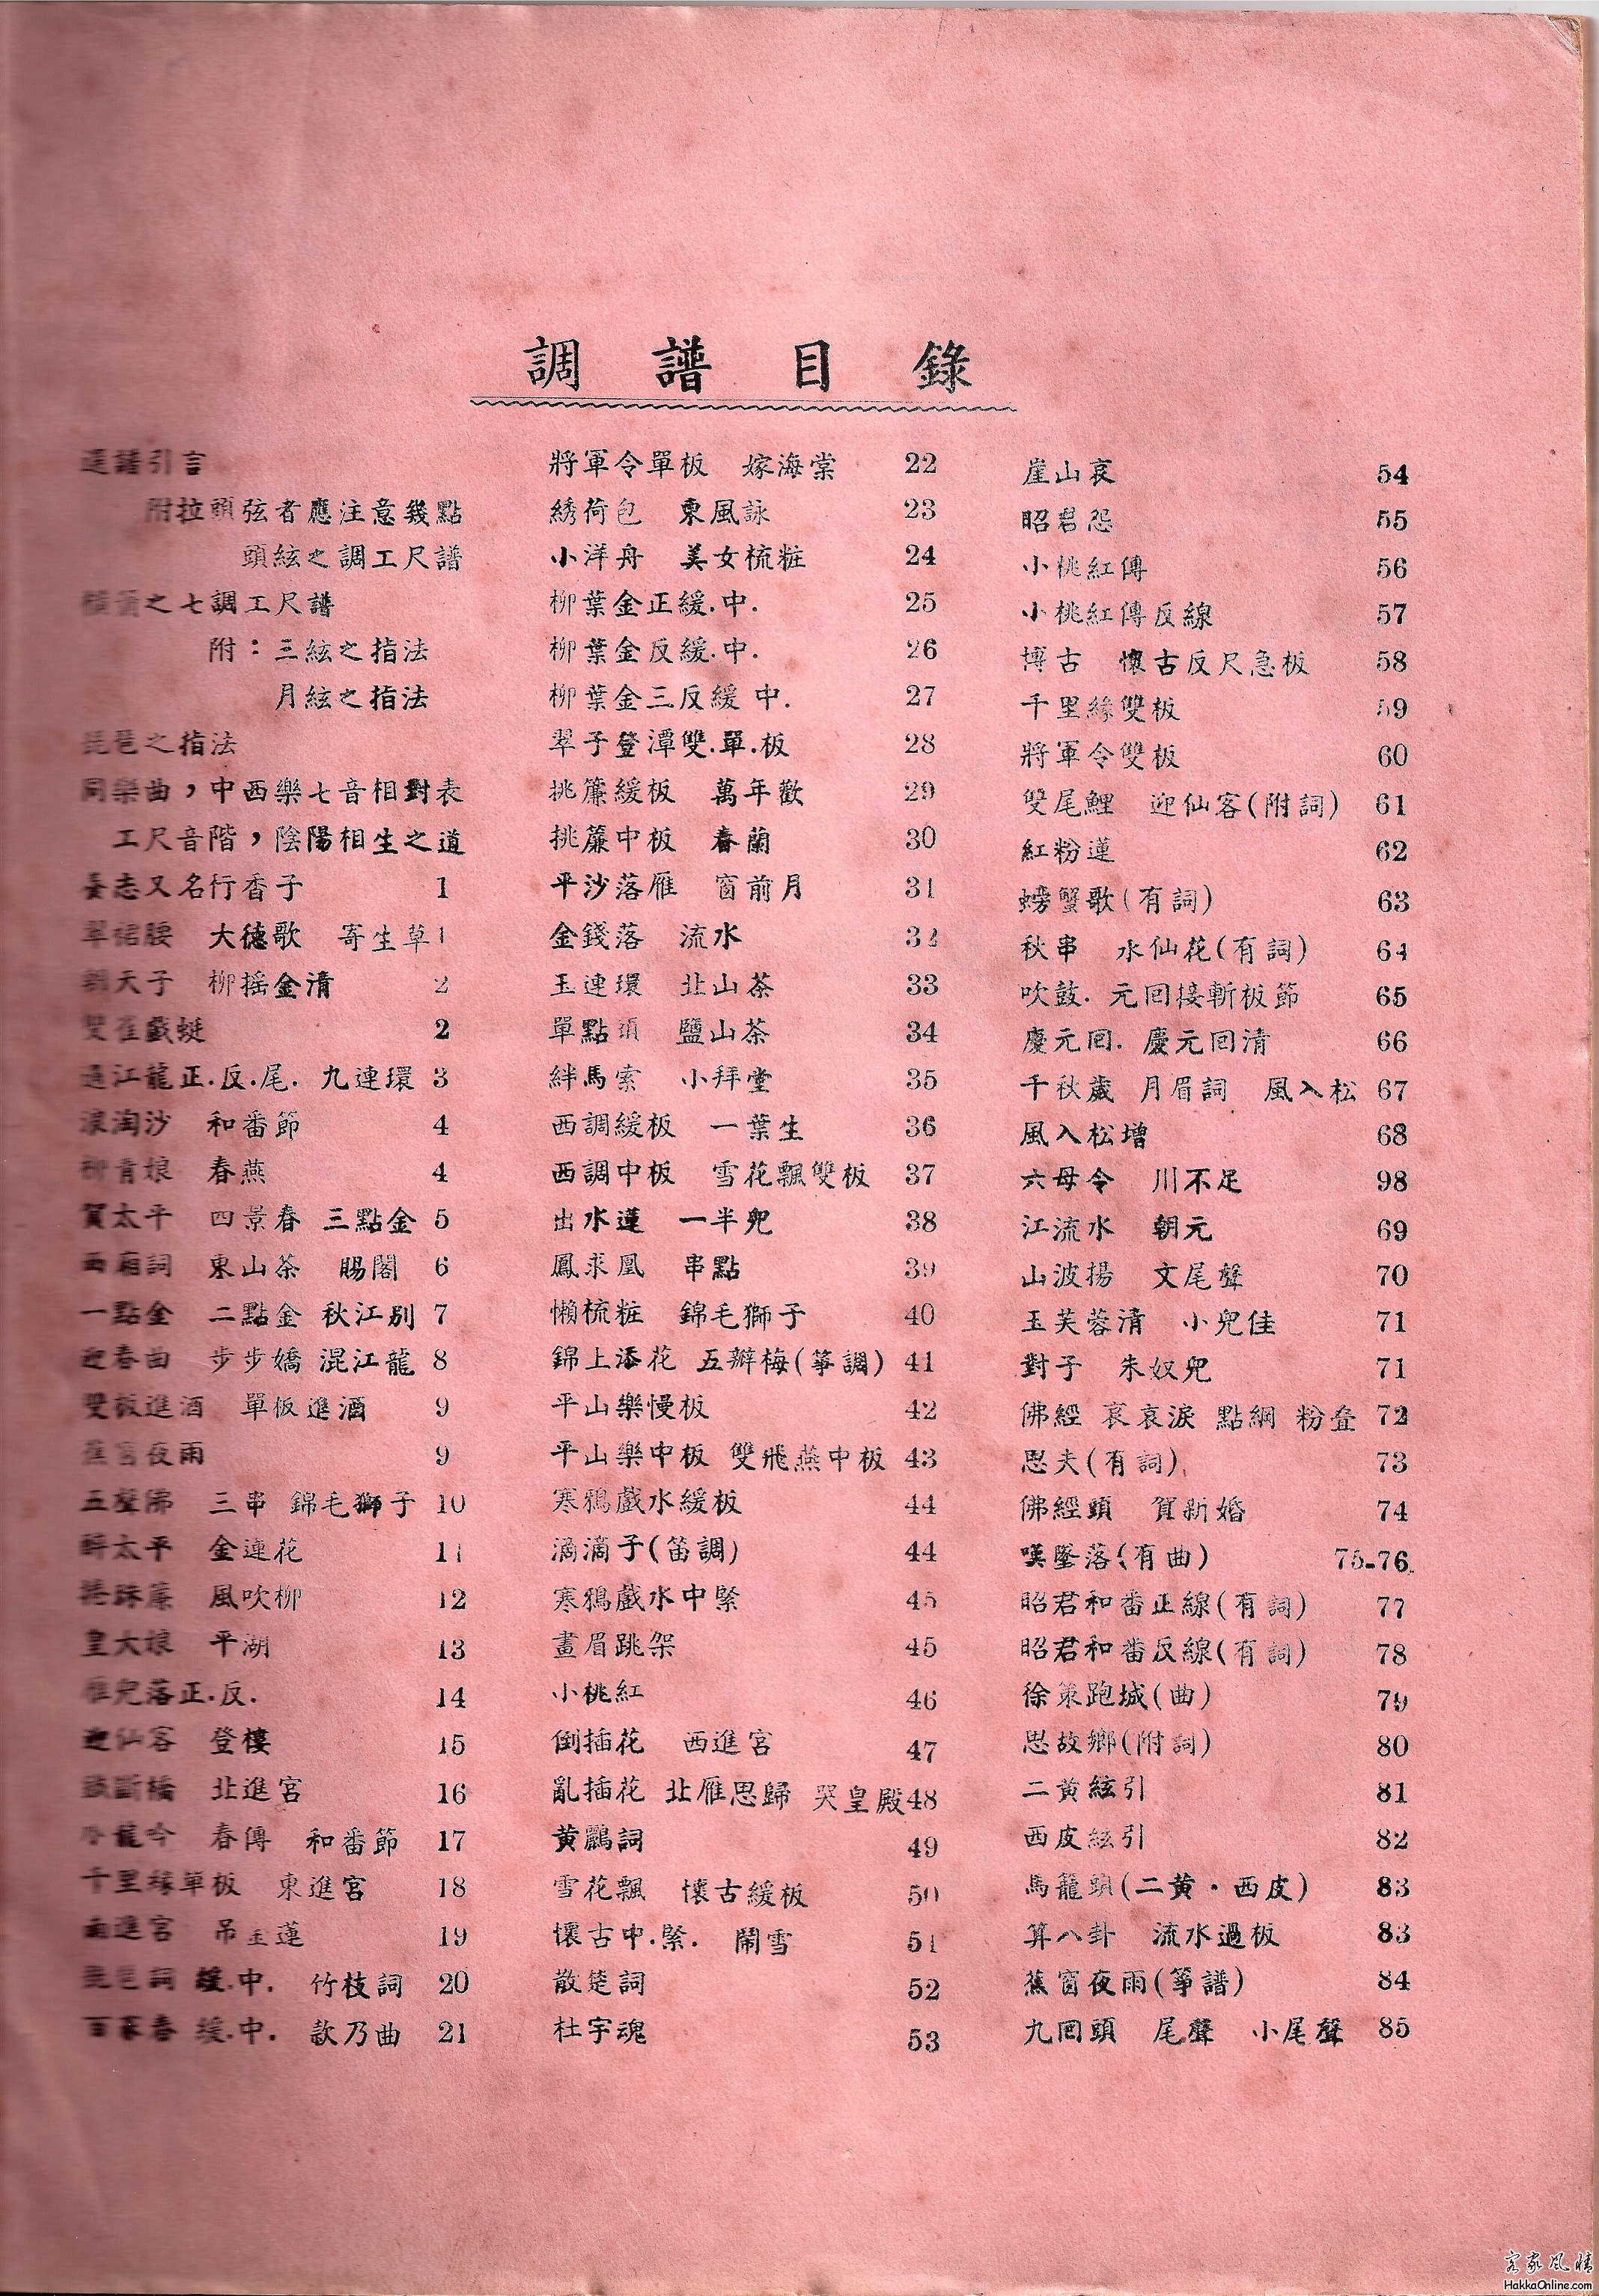 調譜目錄
選譜引言
附拉頭弦者應注意幾點
頭絃之調工尺譜
之七調工尺譜
附：三絃之指法
月絃之指法
琵琶之指法
同樂曲，中西樂七音相對表
工尺音階，陰陽相生之道
臺志又名行香子 1
翠裙腰 大德歌 寄生草 1
朝天子 柳搖金清 2
戲蜓 2
過江龍正.反.尾. 九連環 3
浪淘沙 和番節 4
柳青娘 春燕 4
賀太平 四景春 三點金 5
西廂詞 東山茶 賜閣 6
一點金 二點金 秋江別 7
迎春曲 步步嬌 混江龍 8
雙板進酒 單板進酒 9
蕉窗夜雨 9
五聲佛 三串 錦毛獅子 10
醉太平 金連花 11
捲珠簾 風吹柳 12
皇大娘 平湖 13
雁兒落正.反. 14
迎仙客 登樓 15
斷橋 北進宮 16
小龍吟 春傳 和番節 17
千里緣單板 東進宮 18
南進宮 吊金蓮 19
琵琶詞 緩.中. 竹枝詞 20
百家春 緩.中. 欸乃曲 21
將軍令單板 嫁海棠 22
綉荷包 東風詠 23
小洋舟 美女梳粧 24
柳葉金正緩.中. 25
柳葉金反緩.中. 26
柳葉金三反緩 中. 27
翠子登潭雙.單.板 28
挑簾緩板 萬年歡 29
挑簾中板 春蘭 30
平沙落雁 窗前月 31
金錢落 流水 32
玉連環 北山茶 33
單點頭 鹽山茶 34
絆馬索 小拜堂 35
西調緩板 一葉生 36
西調中板 雪花飄雙板 37
出水蓮 一半兒 38
鳳求凰 串點 39
懶梳粧 錦毛獅子 40
錦上添花 五瓣梅(箏調) 41
平山樂慢板 42
平山樂中板 雙飛燕中板 43
寒鴉戲水緩板 44
滴滴子(笛調) 44
寒鴉戲水中緊 45
畫眉跳架 45
小桃紅 46
倒插花 西進宮 47
亂插花 北雁思歸 哭皇殿 48
黃鸝詞 49
雪花飄 懷古緩板 50
懷古中.緊. 鬧雪 51
散楚詞 52
杜宇魂 53
崖山哀 54
昭君怨 55
小桃紅傳 56
小桃紅傳反線 57
博古 懷古反尺急板 58
千里緣雙板 59
將軍令雙板 60
雙尾鯉 迎仙客(附詞) 61
紅粉蓮 62
螃蟹歌(有詞) 63
秋串 水仙花(有詞) 64
吹鼓. 元回接斬板節 65
慶元回. 慶元回清 66
千秋歲 月眉詞 風入松 67
風入松增 68
六母令 川不足 98
江流水 朝元 69
山波揚 文尾聲 70
玉芙蓉清 小兒佳 71
對子 朱奴兒 71
佛經 哀哀淚 點綱 粉叠 72
思夫(有詞) 73
佛經頭 賀新婚 74
嘆墜落(有曲) 75-76
昭君和番正線(有詞) 77
昭君和番反線(有詞) 78
徐策跑城(曲) 79
思故鄉(附詞) 80
二黃絃引 81
西皮絃引 82
馬龍頭(二黃·西皮) 83
算八卦 流水過板 83
蕉窗夜雨(箏譜) 84
九回頭 尾聲 小尾聲 85
客家風情
HakkaOnline.com